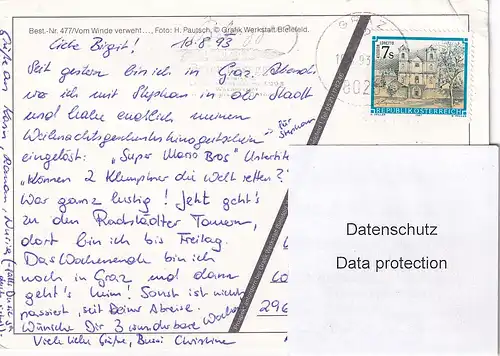 Best.-Nr. 477/Vom Winde verweht..., Foto: H. Pautsch, © Grafik Werkstatt Bielefeld.
Liebe Birgit! 10.8.93
Seit gestern bin ich in Graz. Abends
war ich mit Stephan in der Stadt
und habe endlich meinen
Weihnachtsgeschenkskinogutschein
für Stephan
eingelöst: "Super Mario Bros" Untertitel
"Können 2 Klempner die Welt retten?"
War ganz lustig! Jetzt geht's
zu den Radstädter Tauern,
dort bin ich bis Freitag.
Das Wochenende bin ich
noch in Graz und dann
geht's heim! Sonst ist nichts
passiert, seit Deiner Abreise.
Wünsche Dir 3 wunderbare
Viele liebe Grüße, Bussi Christine
Grüße an
GRAZ
UNECHTE
S 7
REPUBLIK ÖSTERREICH
Datenschutz
Data protection
296